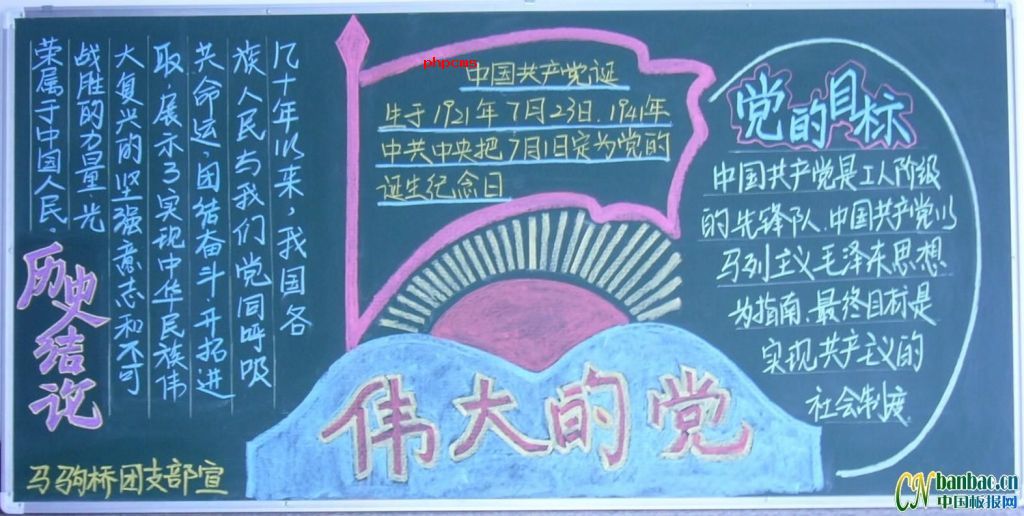 phpcms
中国共产党诞
生于1921年7月23日.1941年
中共中央把7月1日定为党的
诞生纪念日
党的目标
中国共产党是工人阶级
的先锋队.中国共产党以
马列主义毛泽东思想
为指南.最终目标是
实现共产主义的
社会制度
几十年以来,我国各
族人民与我们党同呼吸
共命运,团结奋斗,开拓进
取,展示了实现中华民族伟
大复兴的坚强意志和不可
战胜的力量,光
荣属于中国人民.
历史结论
伟大的党
马驹桥团支部宣
CN banbao.cn
中国板报网